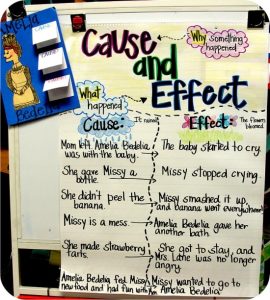 Amelia
Bedelia
Cause
and
Effect
Why something
happened
What
happened
Cause:
It rained.
Effect:
The flowers
bloomed.
Mom left Amelia Bedelia
was with the baby.
The baby started to cry.
She gave Missy a
bottle.
Missy stopped crying.
She didn't peel the
banana.
Missy smashed it up,
and banana went everywhere!
Missy is a mess.
Amelia Bedelia gave her
another bath.
She made strawberry
tarts.
She got to stay, and
Mrs. Lane was no longer
angry.
Amelia Bedelia fed Missy
new food and had fun with her.
Missy wanted to go to
Amelia Bedelia